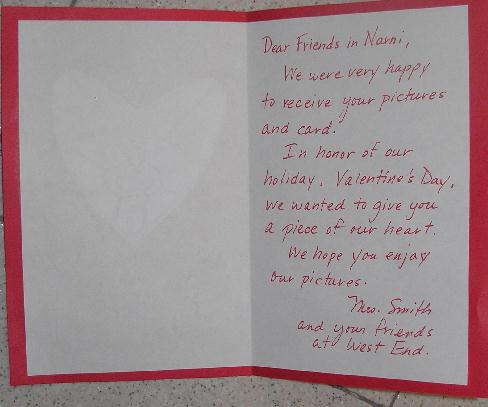 Dear Friends in Narni,
We were very happy
to receive your pictures
and card.
In honor of our
holiday, Valentine's Day,
we wanted to give you
a piece of our heart.
We hope you enjoy
our pictures.
Mrs. Smith
and your friends
at West End.